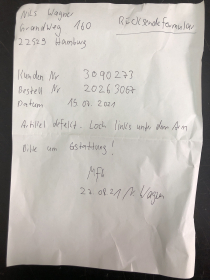 Nils Wagner
Grandweg 160
Rücksendeformular
22529 Hamburg
Kunden Nr 3090273
Bestell Nr 20263067
Datum 15.07.2021
Artikel defekt. Loch links unter dem Arm
Bitte um Gstattung!
Mfg
22.0821 N. Wagner